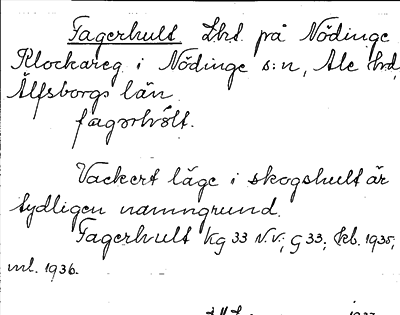 Fagerhult Lht. på Nödinge
Klockareg. i Nödinge s:n, Ale hd,
Älfsborgs län.
fagərhɵlt.
Vackert läge i skogshult är
tydligen namngrund.
Fagerhult Kg 33 N.V.; G 33; Kb. 1935;
ml. 1936.